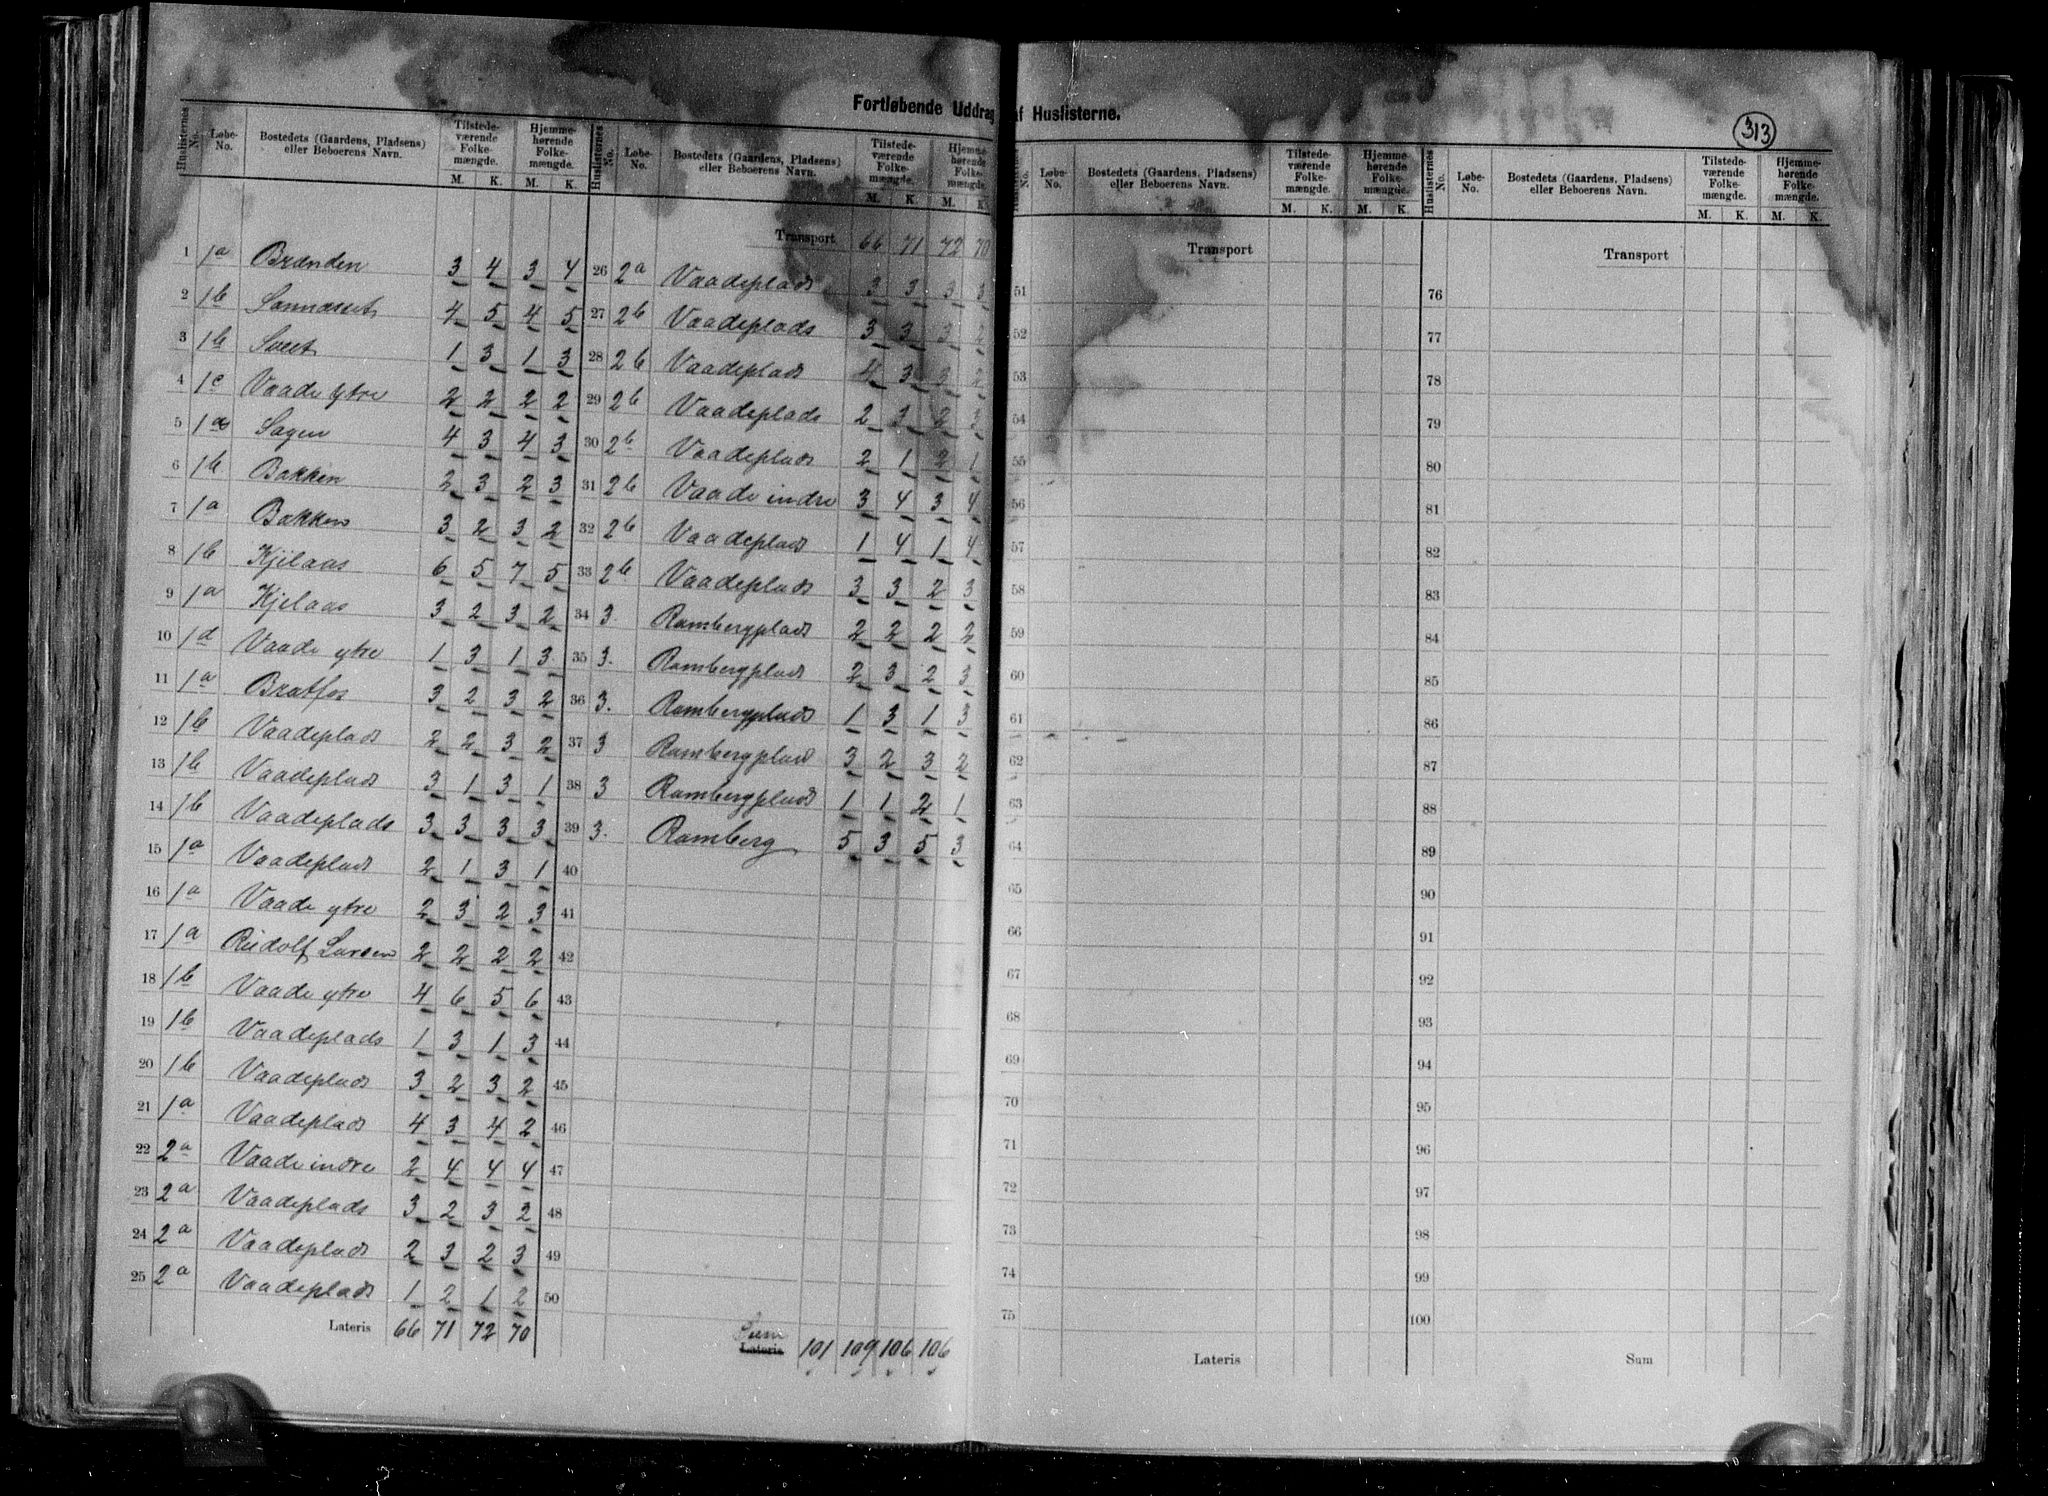 Fortløbende Uddrag af Huslisterne.
313
Huslisternes No. Løbe-No. Bostedets (Gaardens, Pladsens) eller Beboerens Navn. Tilstedeværende Folkemængde. M. K. Hjemmehørende Folkemængde. M. K.
1 1a Brænden 3 4 3 4
2 1b 4 5 4 5
3 1b 1 3 1 3
4 1c Vaade ytre 2 2 2 2
5 1a Sagen 4 3 4 3
6 1b Bakken 2 3 2 3
7 1a Bakken 3 2 3 2
8 1b Kjilaas 6 5 7 5
9 1a Kjelaas 3 2 3 2
10 1d Vaade ytre 1 3 1 3
11 1a Bratfos 3 2 3 2
12 1b Vaadeplads 2 2 3 2
13 1b Vaadeplads 3 1 3 1
14 1b Vaadeplads 3 3 3 3
15 1a Vaadeplads 2 1 3 1
16 1a Vaade ytre 2 3 2 3
17 1a Rudolf Larsen 2 2 2 2
18 1b Vaade ytre 4 6 5 6
19 1b Vaadeplads 1 3 1 3
20 1b Vaadeplads 3 2 3 2
21 1a Vaadeplads 4 3 4 2
22 2a Vaade indre 2 4 4 4
23 2a Vaadeplads 3 2 3 2
24 2a Vaadeplads 2 3 2 3
25 2a Vaadeplads 1 2 1 2
Lateris 66 71 72 70
Huslisternes No. Løbe-No. Bostedets (Gaardens, Pladsens) eller Beboerens Navn. Tilstedeværende Folkemængde. M. K. Hjemmehørende Folkemængde. M. K.
Transport 66 71 72 70
26 2a Vaadeplads 3 3 3 3
27 2b Vaadeplads 3 3 3 2
28 2b Vaadeplads 4 3 3 2
29 2b Vaadeplads 2 3 2 3
30 2b Vaadeplads 2 1 2 1
31 2b Vaade indre 3 4 3 4
32 2b Vaadeplads 1 4 1 4
33 2b Vaadeplads 3 3 2 3
34 3. Rambergplads 2 2 2 2
35 3. Rambergplads 2 3 2 3
36 3. Rambergplads 1 3 1 3
37 3 Rambergplads 3 2 3 2
38 3 Rambergplads 1 1 2 1
39 3. Ramberg 5 3 5 3
40
41
42
43
44
45
46
47
48
49
50
Sum
Lateris 101 109 106 106
Huslisternes No. Løbe-No. Bostedets (Gaardens, Pladsens) eller Beboerens Navn. Tilstedeværende Folkemængde. M. K. Hjemmehørende Folkemængde. M. K.
Transport
51
52
53
54
55
56
57
58
59
60
61
62
63
64
65
66
67
68
69
70
71
72
73
74
75
Lateris
Huslisternes No. Løbe-No. Bostedets (Gaardens, Pladsens) eller Beboerens Navn. Tilstedeværende Folkemængde. M. K. Hjemmehørende Folkemængde. M. K.
Transport
76
77
78
79
80
81
82
83
84
85
86
87
88
89
90
91
92
93
94
95
96
97
98
99
100
Sum